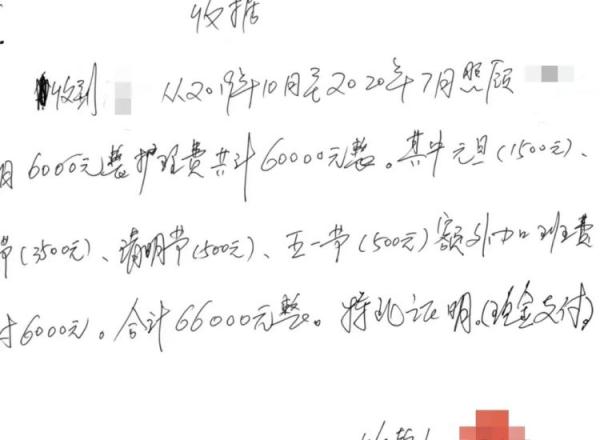 收据
收到 从2019年10月至2020年7月照顾
月6000元整护理费共计60000元整。其中元旦(1500元)、
节(3500元)、清明节(500元)、五一节(500元)额外加班费
计6000元。合计66000元整。特此证明。(现金支付)